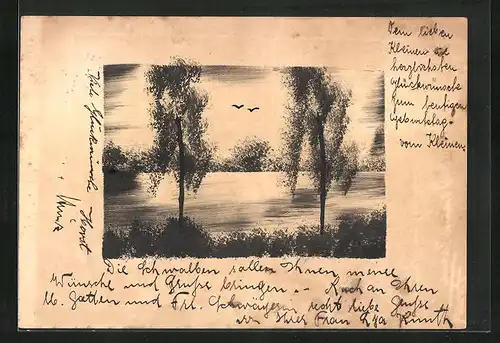 Dem lieben
Kleinen die
herzlichsten
Glückwünsche
zum heutigen
Geburtstag.
vom Kleinen.
Viele Glückwünsche Horst
Die Schwalben sollen Ihnen meine
Wünsche und Grüße bringen. - Auch an Ihren
lb. Gatten und Frl. Schwägerin recht liebe Grüße
von Ihrer Frau